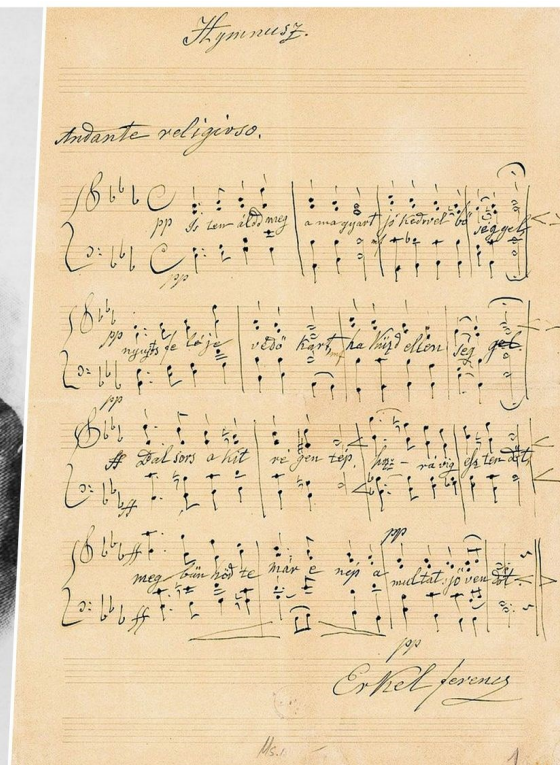 Hymnusz.
Andante religioso.
pp Is ten áldd meg a magyart jó kedvvel bő séggel
pp
pp nyújts fe léje védő kart, ha küzd ellen ség gel.
pp
ff Bal sors a kit ré gen tép, hoz – rá víg esz ten dőt,
ff
pp
ff meg bűn hőd te már e nép a multat jö ven dőt.
ff
pp
Erkel ferencz
Ms. 1